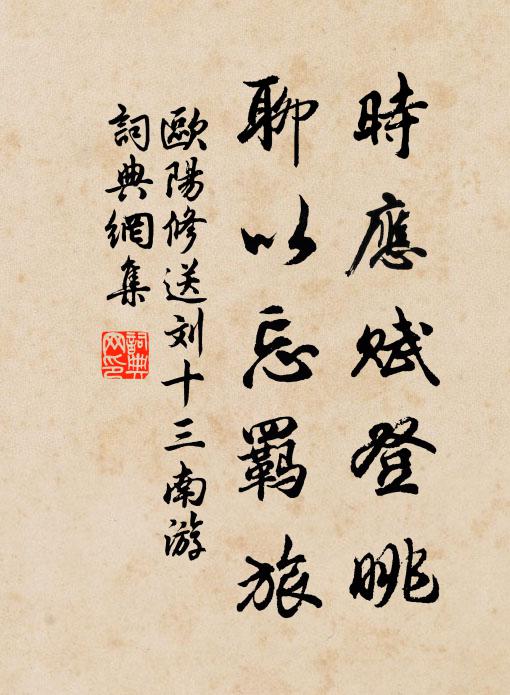 時應賦登眺
聊以忘羈旅
歐陽修送刘十三南游
詞典網集
詞典网印